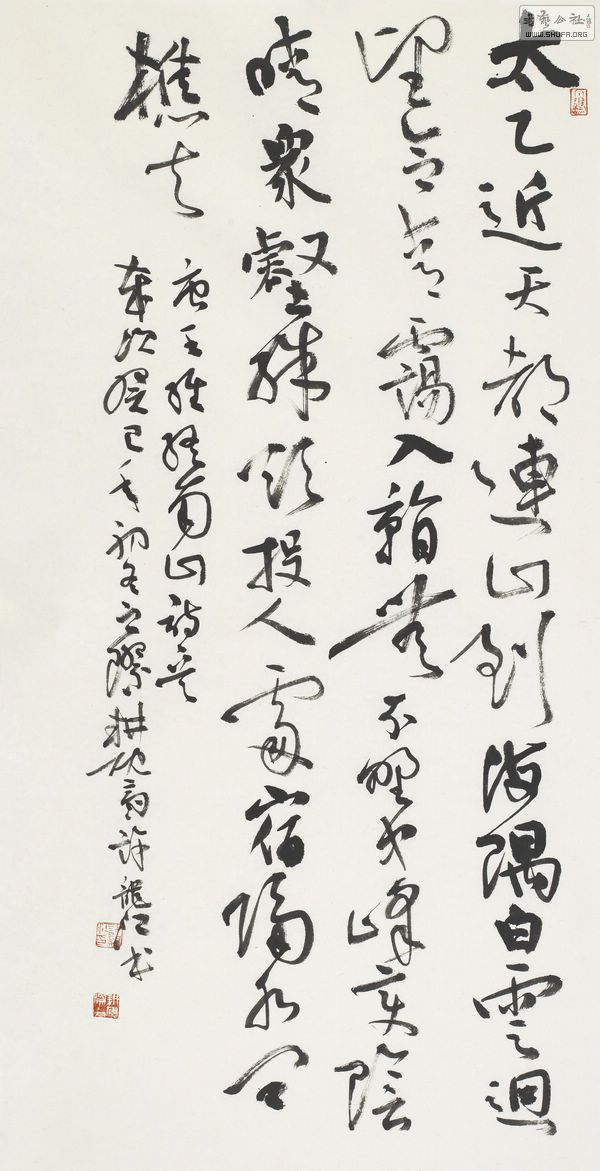 書藝公社
WWW.SHUFA.ORG
太乙近天都連山到海隅白雲迴
望合青靄入看無分野中峰變陰
晴眾壑殊欲投人處宿隔水問
樵夫
唐王維終南山詩
歲次癸巳年初冬之際耕硯齋許龍江書